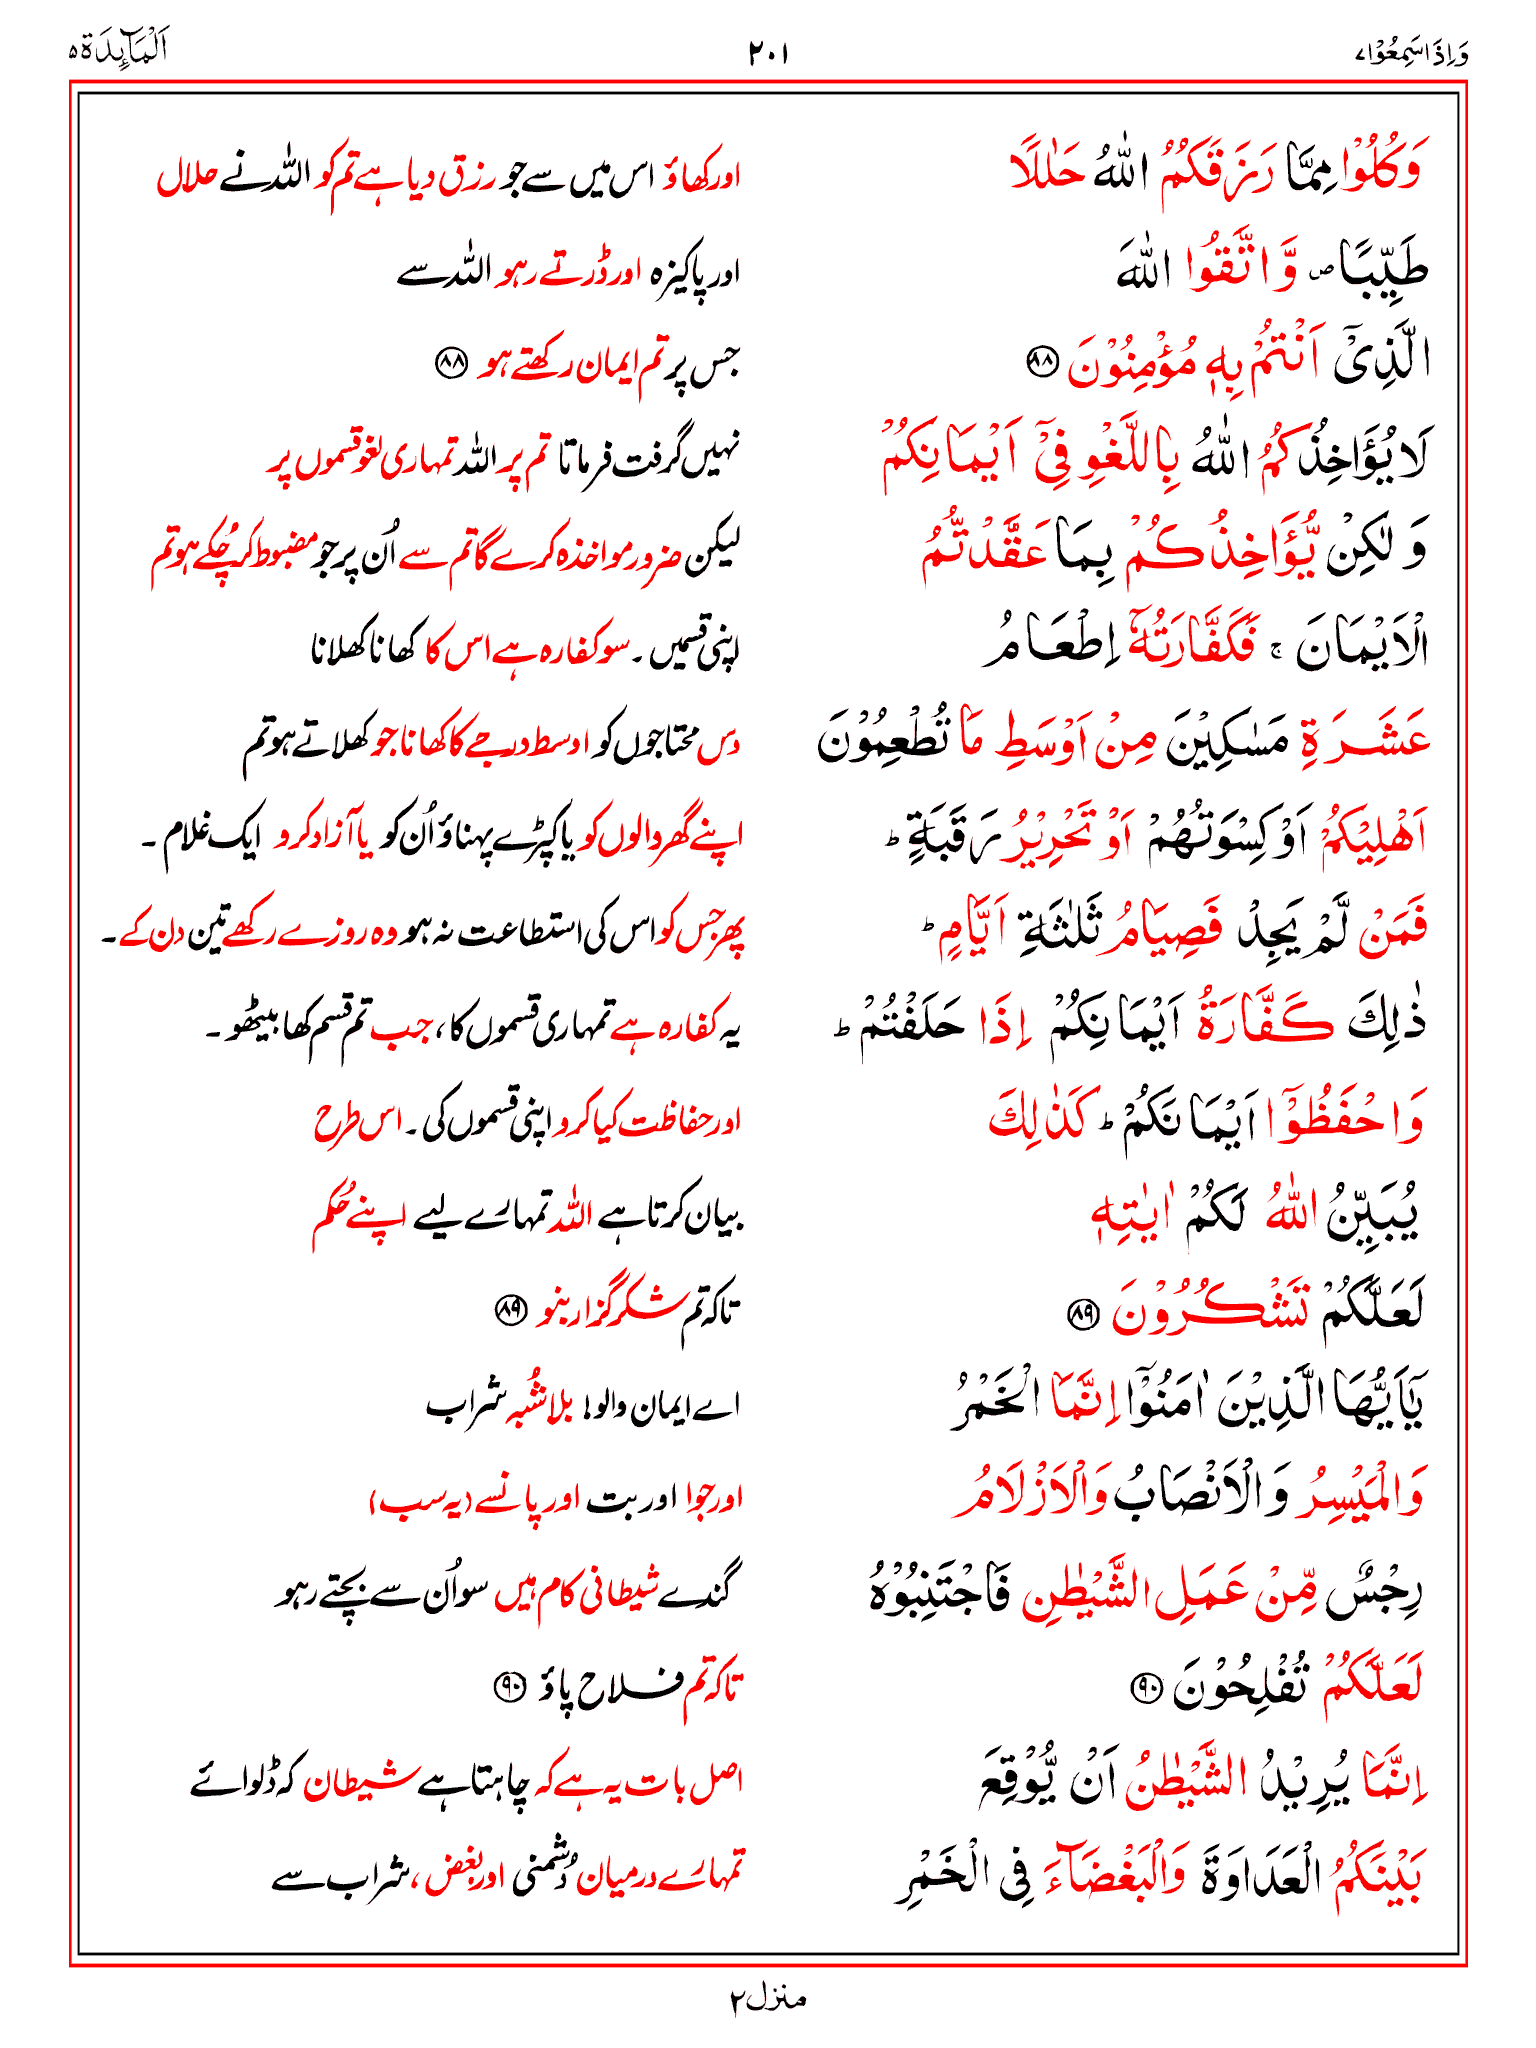 وَاِذَا سَمِعُوْا ۷ ۲۰۱ اَلْمَآئِدَة ۵
وَكُلُوْا مِمَّا رَزَقَكُمُ اللّٰهُ حَلٰلًا اور کھاؤ اس میں سے جو رزق دیا ہے تم کو اللہ نے حلال
طَيِّبًا ۠ وَّاتَّقُوا اللّٰهَ اور پاکیزہ اور ڈرتے رہو اللہ سے
الَّذِيْٓ اَنْتُمْ بِهٖ مُؤْمِنُوْنَ ۸۸ جس پر تم ایمان رکھتے ہو ۸۸
لَا يُؤَاخِذُكُمُ اللّٰهُ بِاللَّغْوِ فِيْٓ اَيْمَانِكُمْ نہیں گرفت فرماتا تم پر اللہ تمہاری لغو قسموں پر
وَلٰكِنْ يُّؤَاخِذُكُمْ بِمَا عَقَّدْتُّمُ لیکن ضرور مواخذہ کرے گا تم سے اُن پر جو مضبوط کر چُکے ہو تم
الْاَيْمَانَ ۚ فَكَفَّارَتُهٗٓ اِطْعَامُ اپنی قسمیں۔ سو کفارہ ہے اس کا کھانا کھلانا
عَشَرَةِ مَسٰكِيْنَ مِنْ اَوْسَطِ مَا تُطْعِمُوْنَ دس محتاجوں کو اوسط درجے کا کھانا جو کھلاتے ہو تم
اَهْلِيْكُمْ اَوْ كِسْوَتُهُمْ اَوْ تَحْرِيْرُ رَقَبَةٍ ؕ اپنے گھر والوں کو یا کپڑے پہناؤ اُن کو یا آزاد کرو ایک غلام۔
فَمَنْ لَّمْ يَجِدْ فَصِيَامُ ثَلٰثَةِ اَيَّامٍ ؕ پھر جس کو اس کی استطاعت نہ ہو وہ روزے رکھے تین دن کے۔
ذٰلِكَ كَفَّارَةُ اَيْمَانِكُمْ اِذَا حَلَفْتُمْ ؕ یہ کفارہ ہے تمہاری قسموں کا، جب تم قسم کھا بیٹھو۔
وَاحْفَظُوْٓا اَيْمَانَكُمْ ؕ كَذٰلِكَ اور حفاظت کیا کرو اپنی قسموں کی۔ اس طرح
يُبَيِّنُ اللّٰهُ لَكُمْ اٰيٰتِهٖ بیان کرتا ہے اللہ تمہارے لیے اپنے حُکم
لَعَلَّكُمْ تَشْكُرُوْنَ ۸۹ تاکہ تم شکر گزار بنو ۸۹
يٰٓاَيُّهَا الَّذِيْنَ اٰمَنُوْٓا اِنَّمَا الْخَمْرُ اے ایمان والو! بلاشُبہ شراب
وَالْمَيْسِرُ وَالْاَنْصَابُ وَالْاَزْلَامُ اور جوا اور بت اور پانسے (یہ سب)
رِجْسٌ مِّنْ عَمَلِ الشَّيْطٰنِ فَاجْتَنِبُوْهُ گندے شیطانی کام ہیں سو اُن سے بچتے رہو
لَعَلَّكُمْ تُفْلِحُوْنَ ۹۰ تاکہ تم فلاح پاؤ ۹۰
اِنَّمَا يُرِيْدُ الشَّيْطٰنُ اَنْ يُّوْقِعَ اصل بات یہ ہے کہ چاہتا ہے شیطان کہ ڈلوائے
بَيْنَكُمُ الْعَدَاوَةَ وَالْبَغْضَآءَ فِي الْخَمْرِ تمہارے درمیان دُشمنی اور بغض، شراب سے
منزل ۲